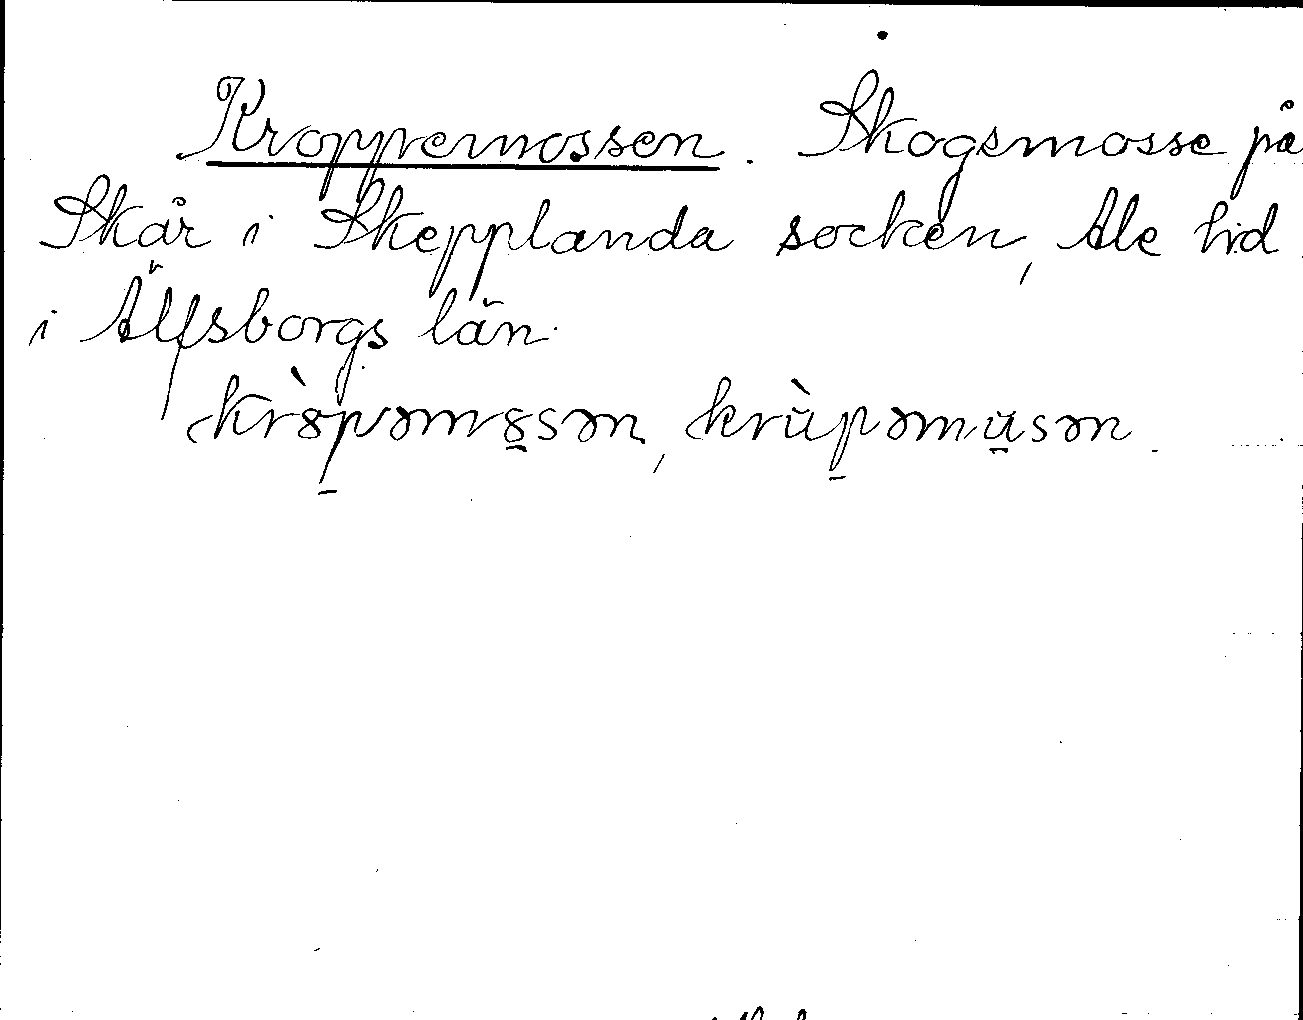 Kroppemossen. Skogsmosse på
Skår i Skepplanda socken, Ale hd
i Älfsborgs län.
kr8̀p̲əm8̲sən, krùp̲əmu̲sən.